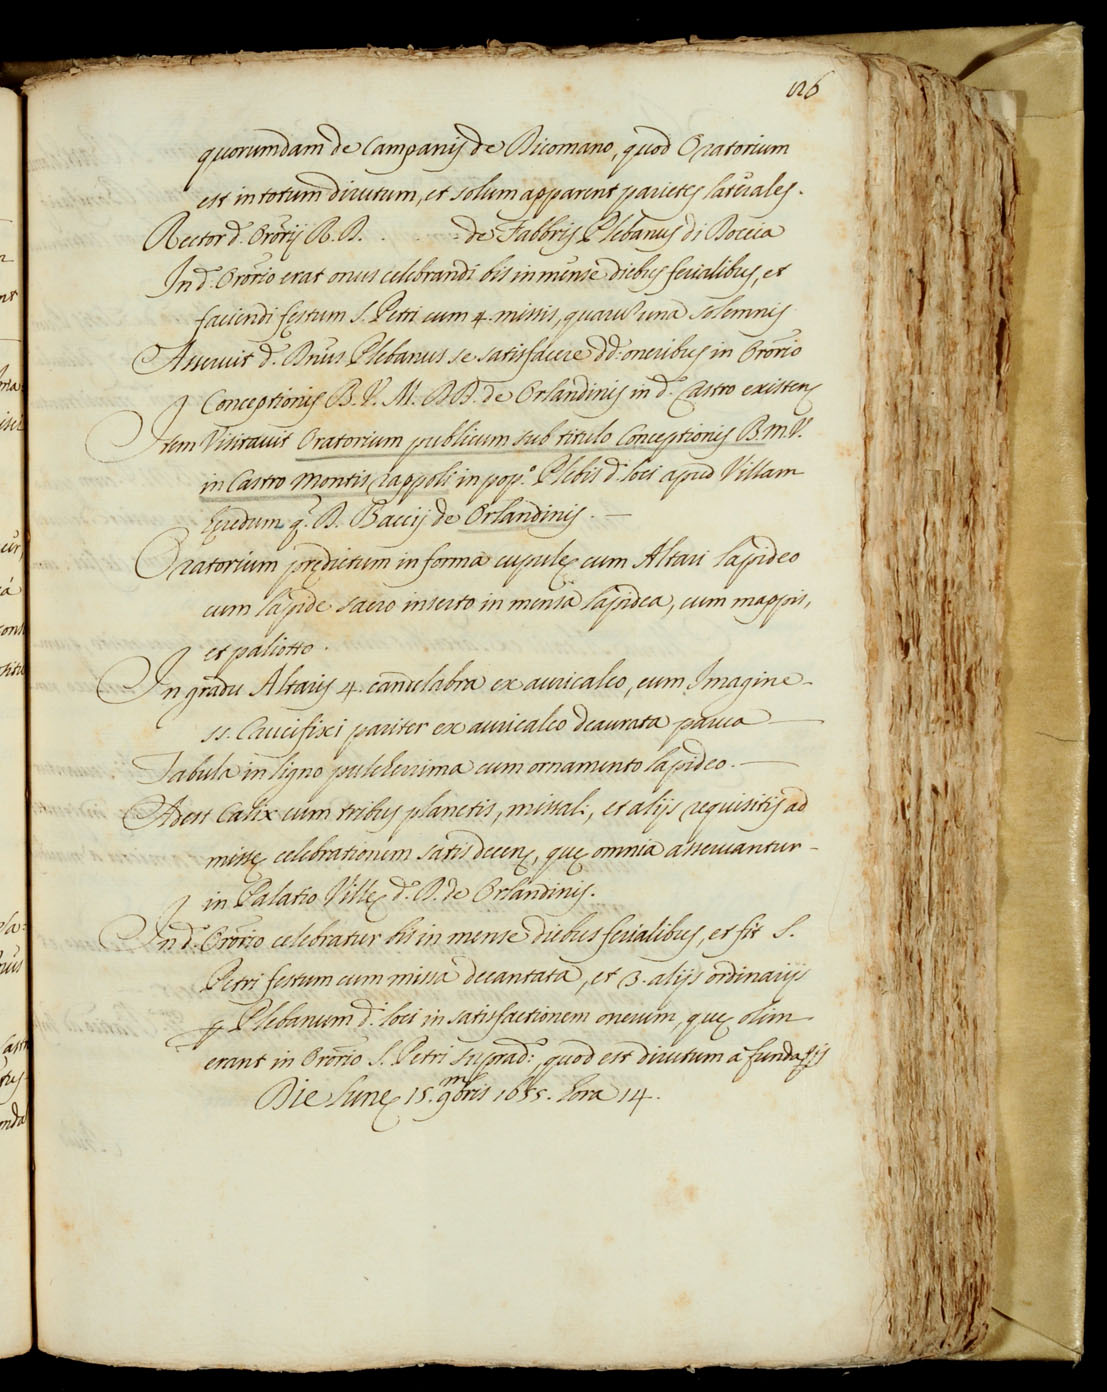 126
quorumdam de Campanijs de Dicomano, quod Oratorium
est in totum dirutum, et solum apparent parietes laterales.
Rector d. Orõrij R. D. . . . . de Fabbris Plebanus di Doccia
In d. Orõrio erat onus celebrandi bis in mense diebus ferialibus, et
faciendi festum S. Petri cum 4. missis, quarũ una solemnis
Asseruit d. Dñus Plebanus se satisfacere dd: oneribus in Orõrio
Conceptionis B. V. M. DD. de Orlandinis in d. Castro existenṫ
Item Visitavit Oratorium publicum sub titulo Conceptionis B.M.V.
in Castro Montis rappoli in pop.º Plebis d. loci apud Villam
heredum q. D. Baccij de Orlandinis. —
Oratorium prędictum in forma cupulę cum Altari lapideo
cum lapide sacro inserto in mensa lapidea, cum mappis,
et paliotto.
In gradu Altaris 4. candelabra ex auricalco, cum Imagine
ss. Crucifixi pariter ex auricalco deaurata parva —
Tabula in ligno pulcherrima cum ornamento lapideo. —
Adest Calix cum tribus planetis, missali, et alijs requisitis ad
missę celebrationem satis decenṫ, quę omnia asservantur
in Palatio Villę d. D. de Orlandinis.
In d. Orõrio celebratur bis in mense diebus ferialibus, et fit S.
Petri festum cum missa decantata, et 3. alijs ordinarijs
p Plebanum d. loci in satisfactionem onerum, quę olim
erant in Orõrio S. Petri suprad: quod est dirutum à fundañis
Die Lunę 15. 9mbris 1655. hora 14.